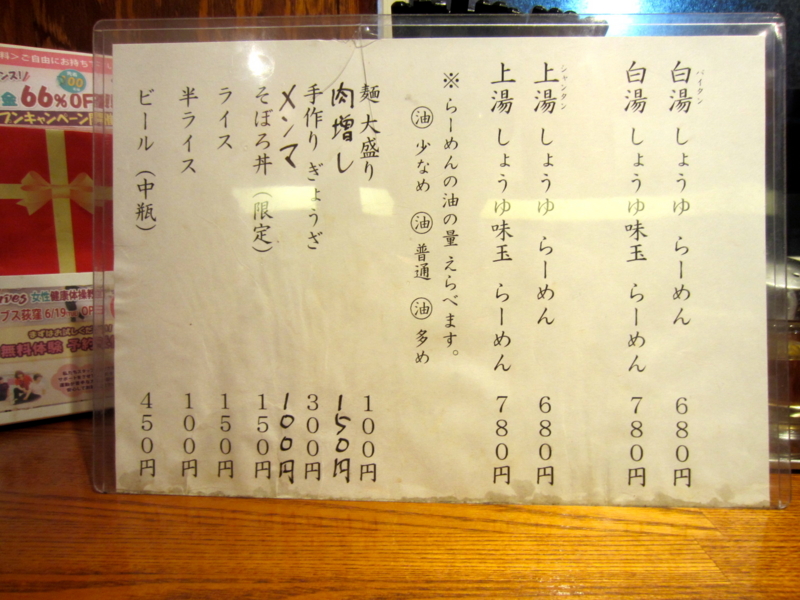 白湯 しょうゆ らーめん 680円
パイタン
白湯 しょうゆ味玉 らーめん 780円
上湯 しょうゆ らーめん 680円
シャンタン
上湯 しょうゆ味玉 らーめん 780円
※ らーめんの油の量 えらべます。
油 少なめ 油 普通 油 多め
麺 大盛り 100円
肉増し 150円
手作り ぎょうざ 300円
メンマ 100円
そぼろ丼 (限定) 150円
ライス 150円
半ライス 100円
ビール (中瓶) 450円
料>ご自由にお持ち
66%OFF
女性健康体操教
ブス荻窪 6/19
無料体験 予